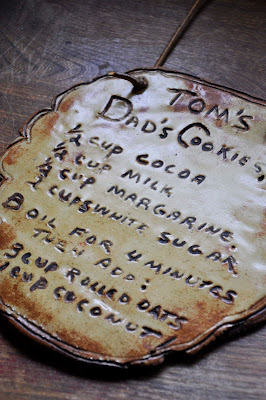 TOM'S
DAD'S COOKIES
½ CUP COCOA
½ CUP MILK
½ CUP MARGARINE
2 CUPS WHITE SUGAR
BOIL FOR 4 MINUTES
THEN ADD:
3 CUP ROLLED OATS
1 CUP COCONUT